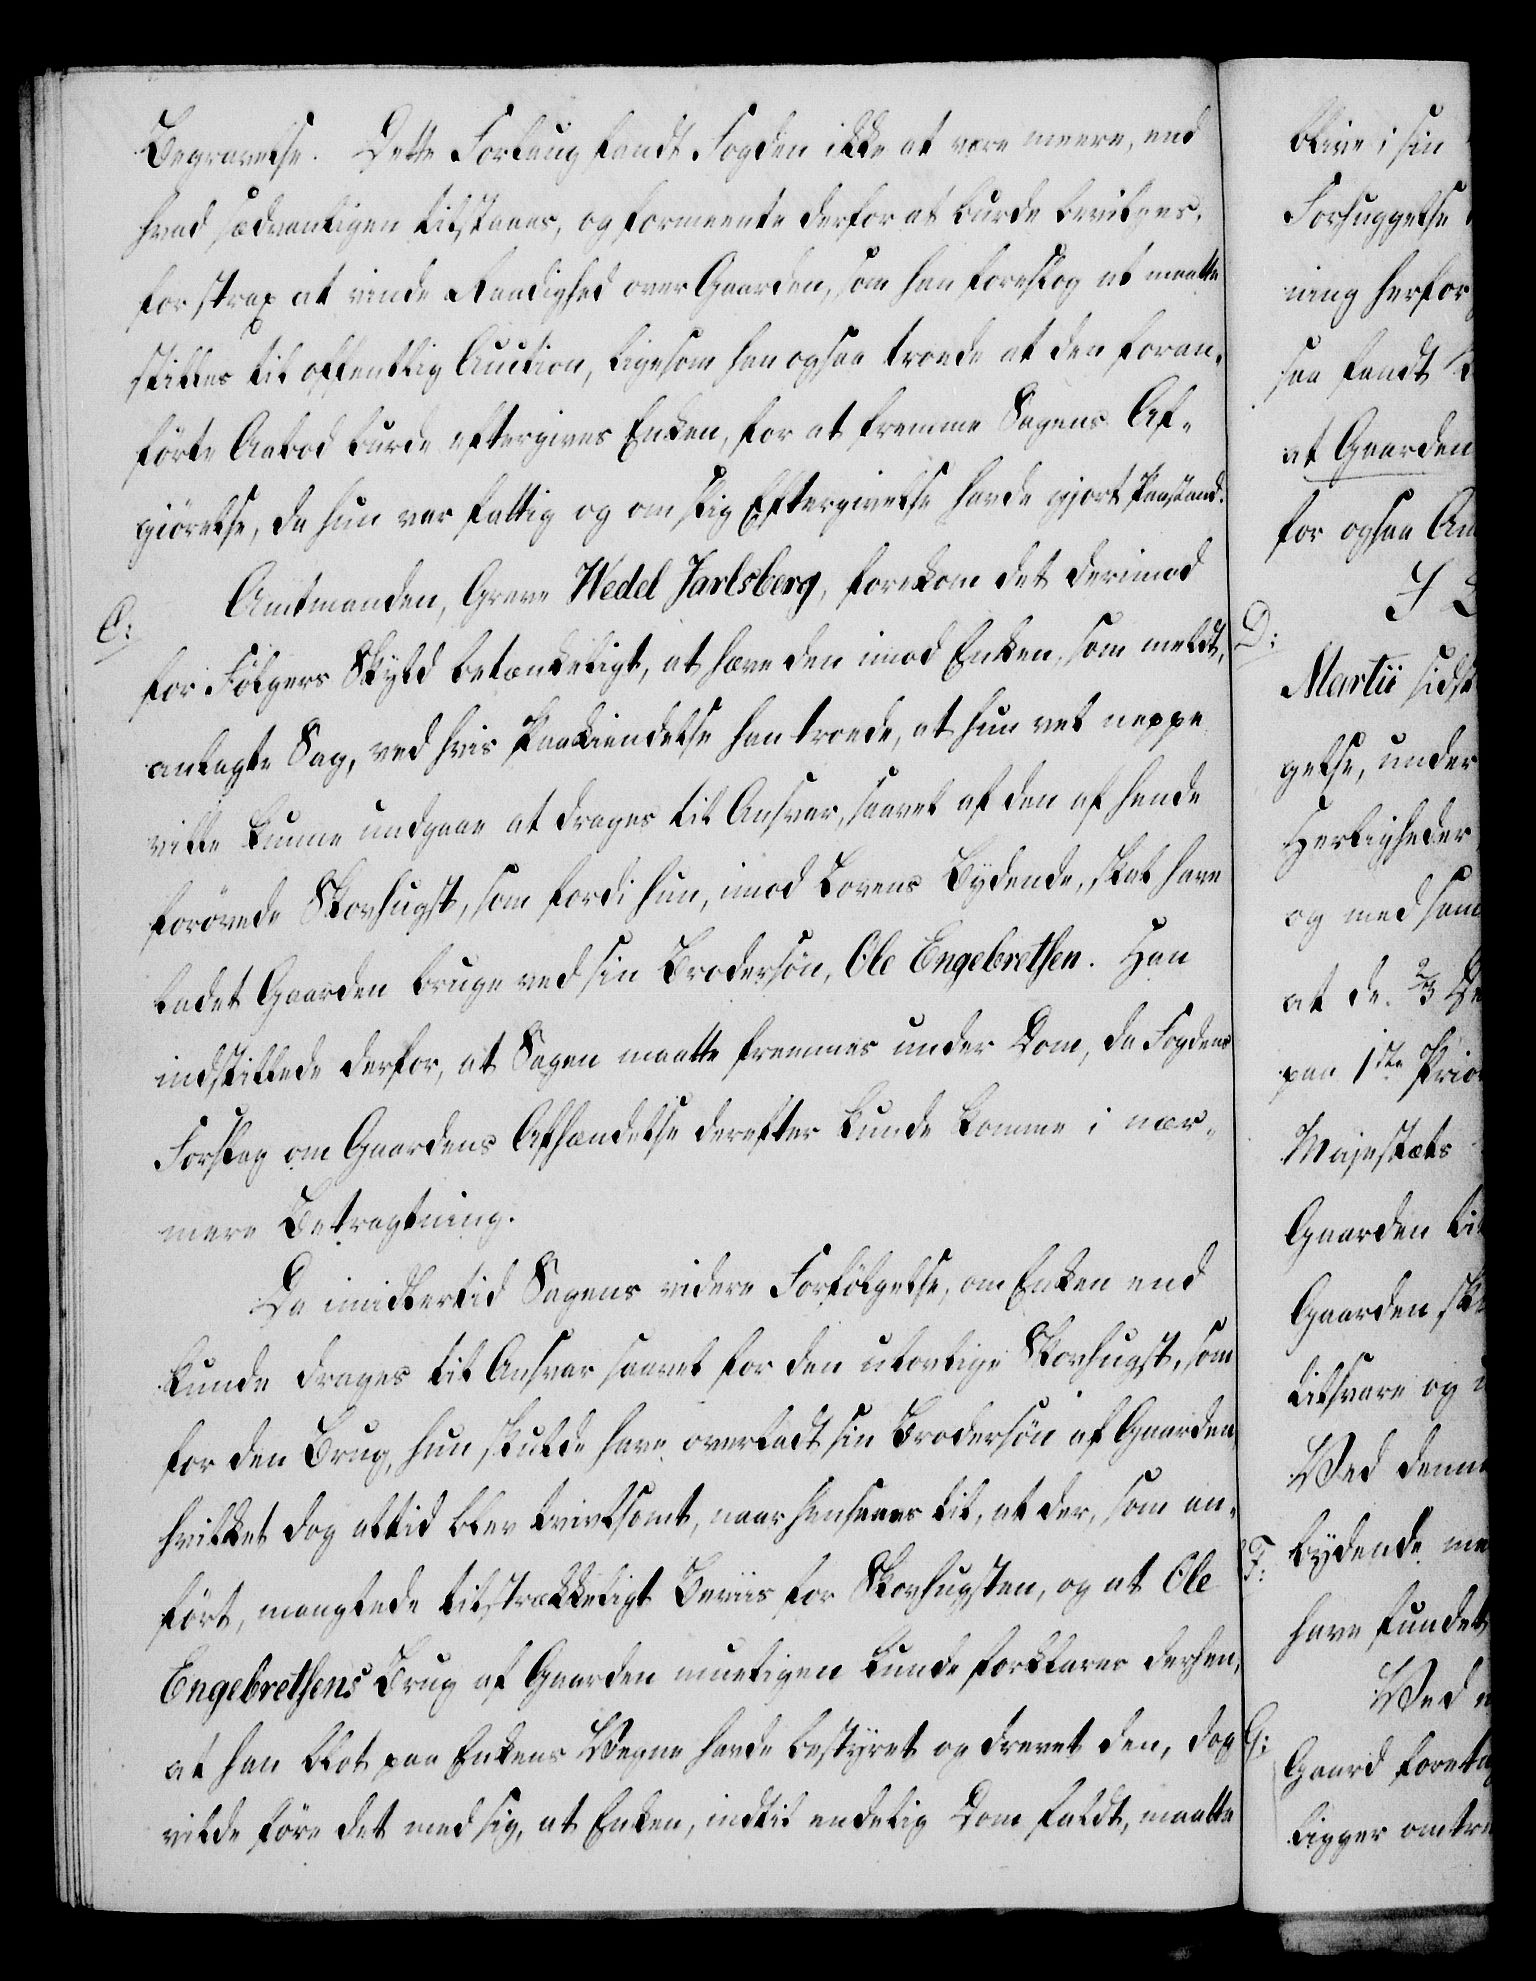 Begravelse. Dette Forlang fandt Fogden ikke at være meere, end
hvad sædvanligen tilstaaes, og formeente derfor at burde bevilges,
for strax at vinde Raadighed over Gaarden, som han foreslog at maatte
stilles til offentlig Auction, ligesom han ogsaa troede at den foran-
førte Aabod burde eftergives Enken, for at fremme Sagens Af-
giørelse, da hun var fattig og om slig Eftergivelse havde gjort Paastand.
C:
Amtmanden, Greve Wedel Jarlsberg, forekom det derimod
for Følgers Skyld betænkeligt, at hæve den imod Enken, som meldt,
anlagte Sag, ved hvis Paakiendelse han troede, at hun vel neppe
vilde kunne undgaae at drages til Ansvar, saavel af den af hende
forøvede Skovhugst, som fordi hun, imod Lovens Bydende, skal have
ladet Gaarden bruge ved sin Brodersøn, Ole Engebrethsen. Han
indstillede derfor, at Sagen maatte fremmes under Dom, da Fogdens
Forslag om Gaardens Afhændelse derefter kunde komme i nær-
mere Betragtning.
Da imidlertid Sagens videre Forfølgelse, om Enken end
kunde drages til Ansvar saavel for den ulovlige Skovhugst, som
for den Brug, hun skulde have overladt sin Brodersøn af Gaarden,
hvilket dog altid blev tvivlsomt, naar hensees til, at der, som an-
ført, manglede tilstrækkeligt Beviis for Skovhugsten, og at Ole
Engebrethsens Brug af Gaarden mueligen kunde forklares derhen,
at han blot paa Enkens Vegne havde bestyret og drevet den, dog
vilde føre det med sig, at Enken, indtil endelig Dom faldt, maatte
blive i sin
Forhuggelse
ning herfor
saa fandt
at Gaarden
for ogsaa Am
D:
Martii sidst
gelse, under
Herligheder
og med sam
at de 2/3
paa 1ste Prio
Majestæts
Gaarden til
Gaarden sk
tilsvare og
Ved denne
F:
bydende me
have fundet
Ved
G:
Gaard foretag
ligger omtre